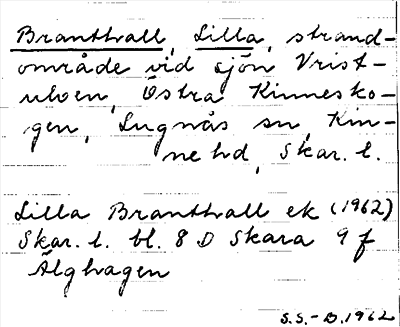 Branthall, Lilla, strand-
område vid sjön Vrist-
ulven, Östra Kinnesko-
gen, Lugnås sn, Kin-
ne hd, Skar. l.
Lilla Branthall ek (1962)
Skar. l. bl. 8 D Skara 9 f
Älghagen
S.S.-B. 1962